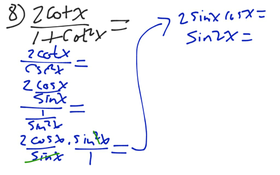 8) 2cotx / 1+cot²x =
2cotx / csc²x =
2 cosx/sinx / 1/sin²x =
2cosx/sinx · sin²x/1 =
2sinx cosx =
sin2x =